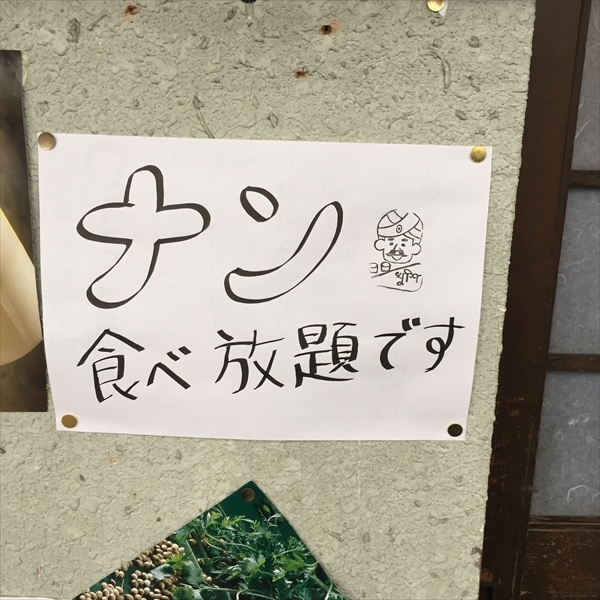 ナン
食べ放題です